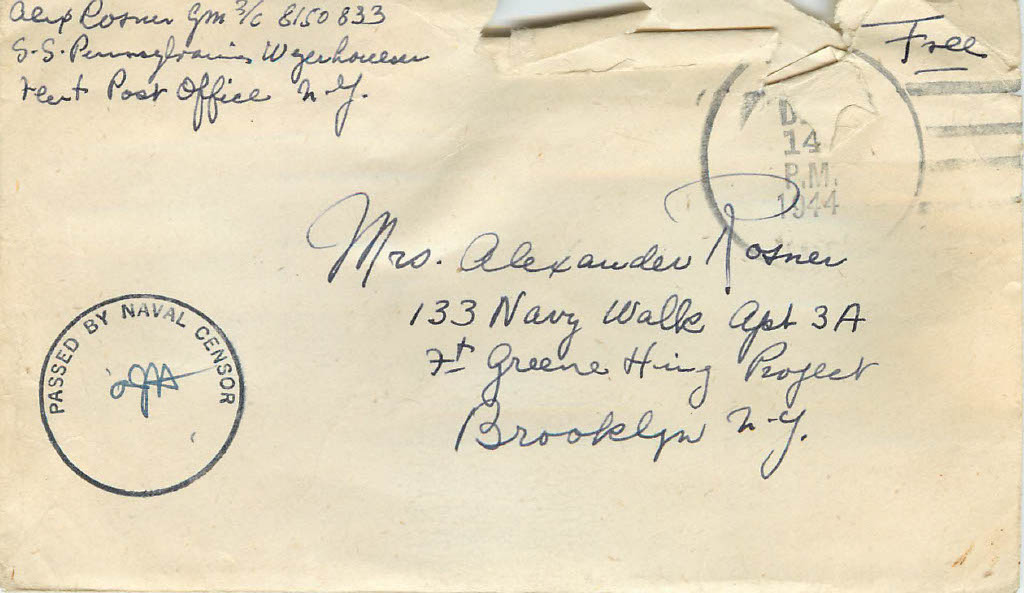 Alex Rosner Gm 3/c 8150833
S.S. Pennsylvania Weyerhaeuser
Fleet Post Office N.Y.
Free
D
14
P.M.
1944
Mrs. Alexander Rosner
133 Navy Walk Apt 3A
Ft Greene Hsing Project
Brooklyn N.Y.
PASSED BY NAVAL CENSOR